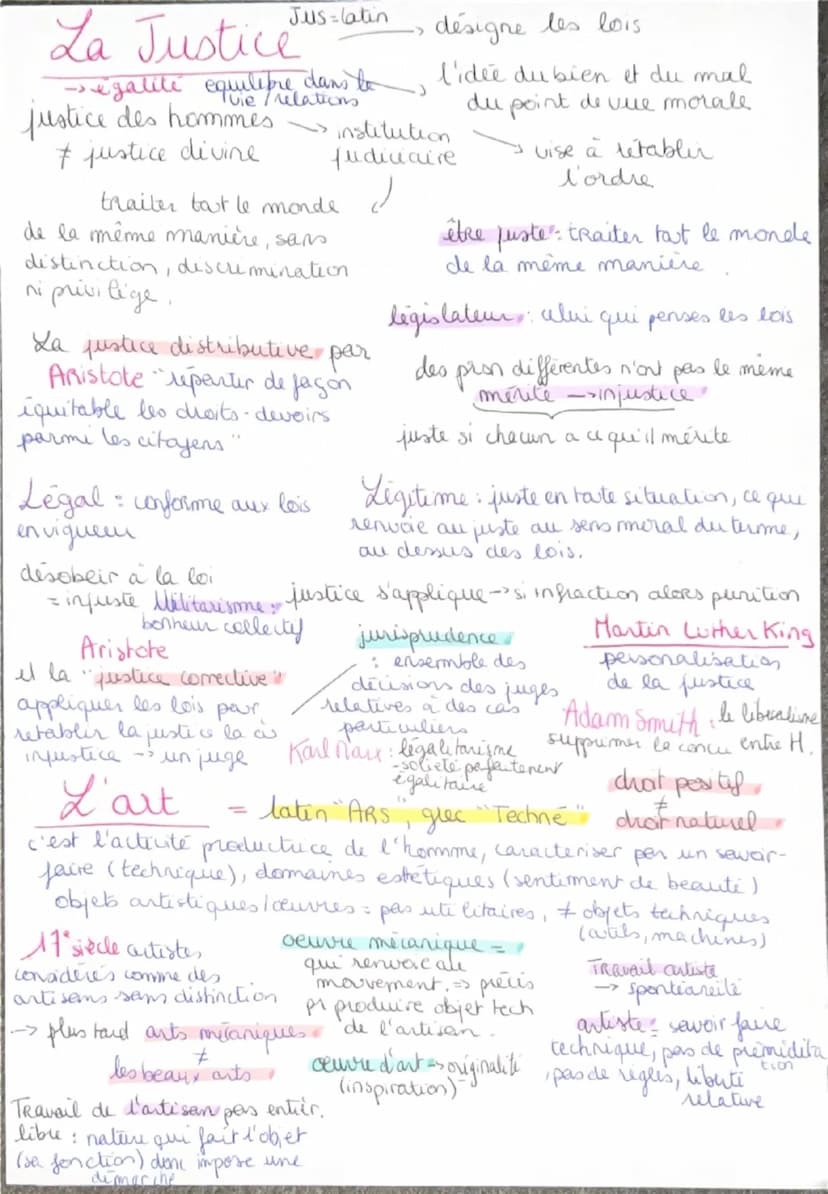 La Justice
JUS = latin → désigne les lois
→ égalité équilibre dans la vie / relations
l'idée du bien et du mal
du point de vue morale
justice des hommes → institution
≠ justice divine judiciaire
→ vise à rétablir
l'ordre
traiter tout le monde
de la même manière, sans
distinction, discrimination
ni privilège.
être juste : traiter tout le monde
de la même manière.
législateur : celui qui penses les lois
La justice distributive par
Aristote "répartir de façon
équitable les droits - devoirs
parmi les citoyens"
des prsn différentes n'ont pas le même
mérite → injustice
juste si chacun a ce qu'il mérite
Légal : conforme aux lois
en vigueur
Légitime : juste en toute situation, ce que
renvoie au juste au sens moral du terme,
au dessus des lois.
désobeir à la loi
= injuste
Utilitarisme :
bonheur collectif
justice s'applique → si infraction alors punition
Aristote
et la "justice corrective"
appliquer les lois pour
retablir la justice la où
injustice → un juge
jurisprudence
: ensemble des
décisions des juges
relatives à des cas
particuliers
Martin Luther King
personalisation
de la justice
Karl Marx : l'égalitarisme
- société parfaitement
égalitaire
Adam Smith : le libéralisme
supprimer la concu entre H.
droit positif
≠
droit naturel
L'art = latin "ARS", grec "Techné"
c'est l'activité productrice de l'homme, caractériser par un savoir-
faire (technique), domaines esthétiques (sentiment de beauté)
objets artistiques / œuvres = pas utilitaires, ≠ objets techniques
(outils, machines)
17e siècle artistes
considérés comme des
artisans sans distinction
→ plus tard arts mécaniques
≠
les beaux arts
Travail de l'artisan pas entièr.
libre : nature qui fait l'objet
(sa fonction) donc impose une
démarche
oeuvre mécanique =
qui renvoie au
mouvement. ⇒ précis
pr produire objet tech
de l'artisan.
oeuvre d'art → originalité
(inspiration)
Travail artiste
→ spontanéité
artiste = savoir faire
technique, pas de prémédita
tion
, pas de règles, liberté
relative